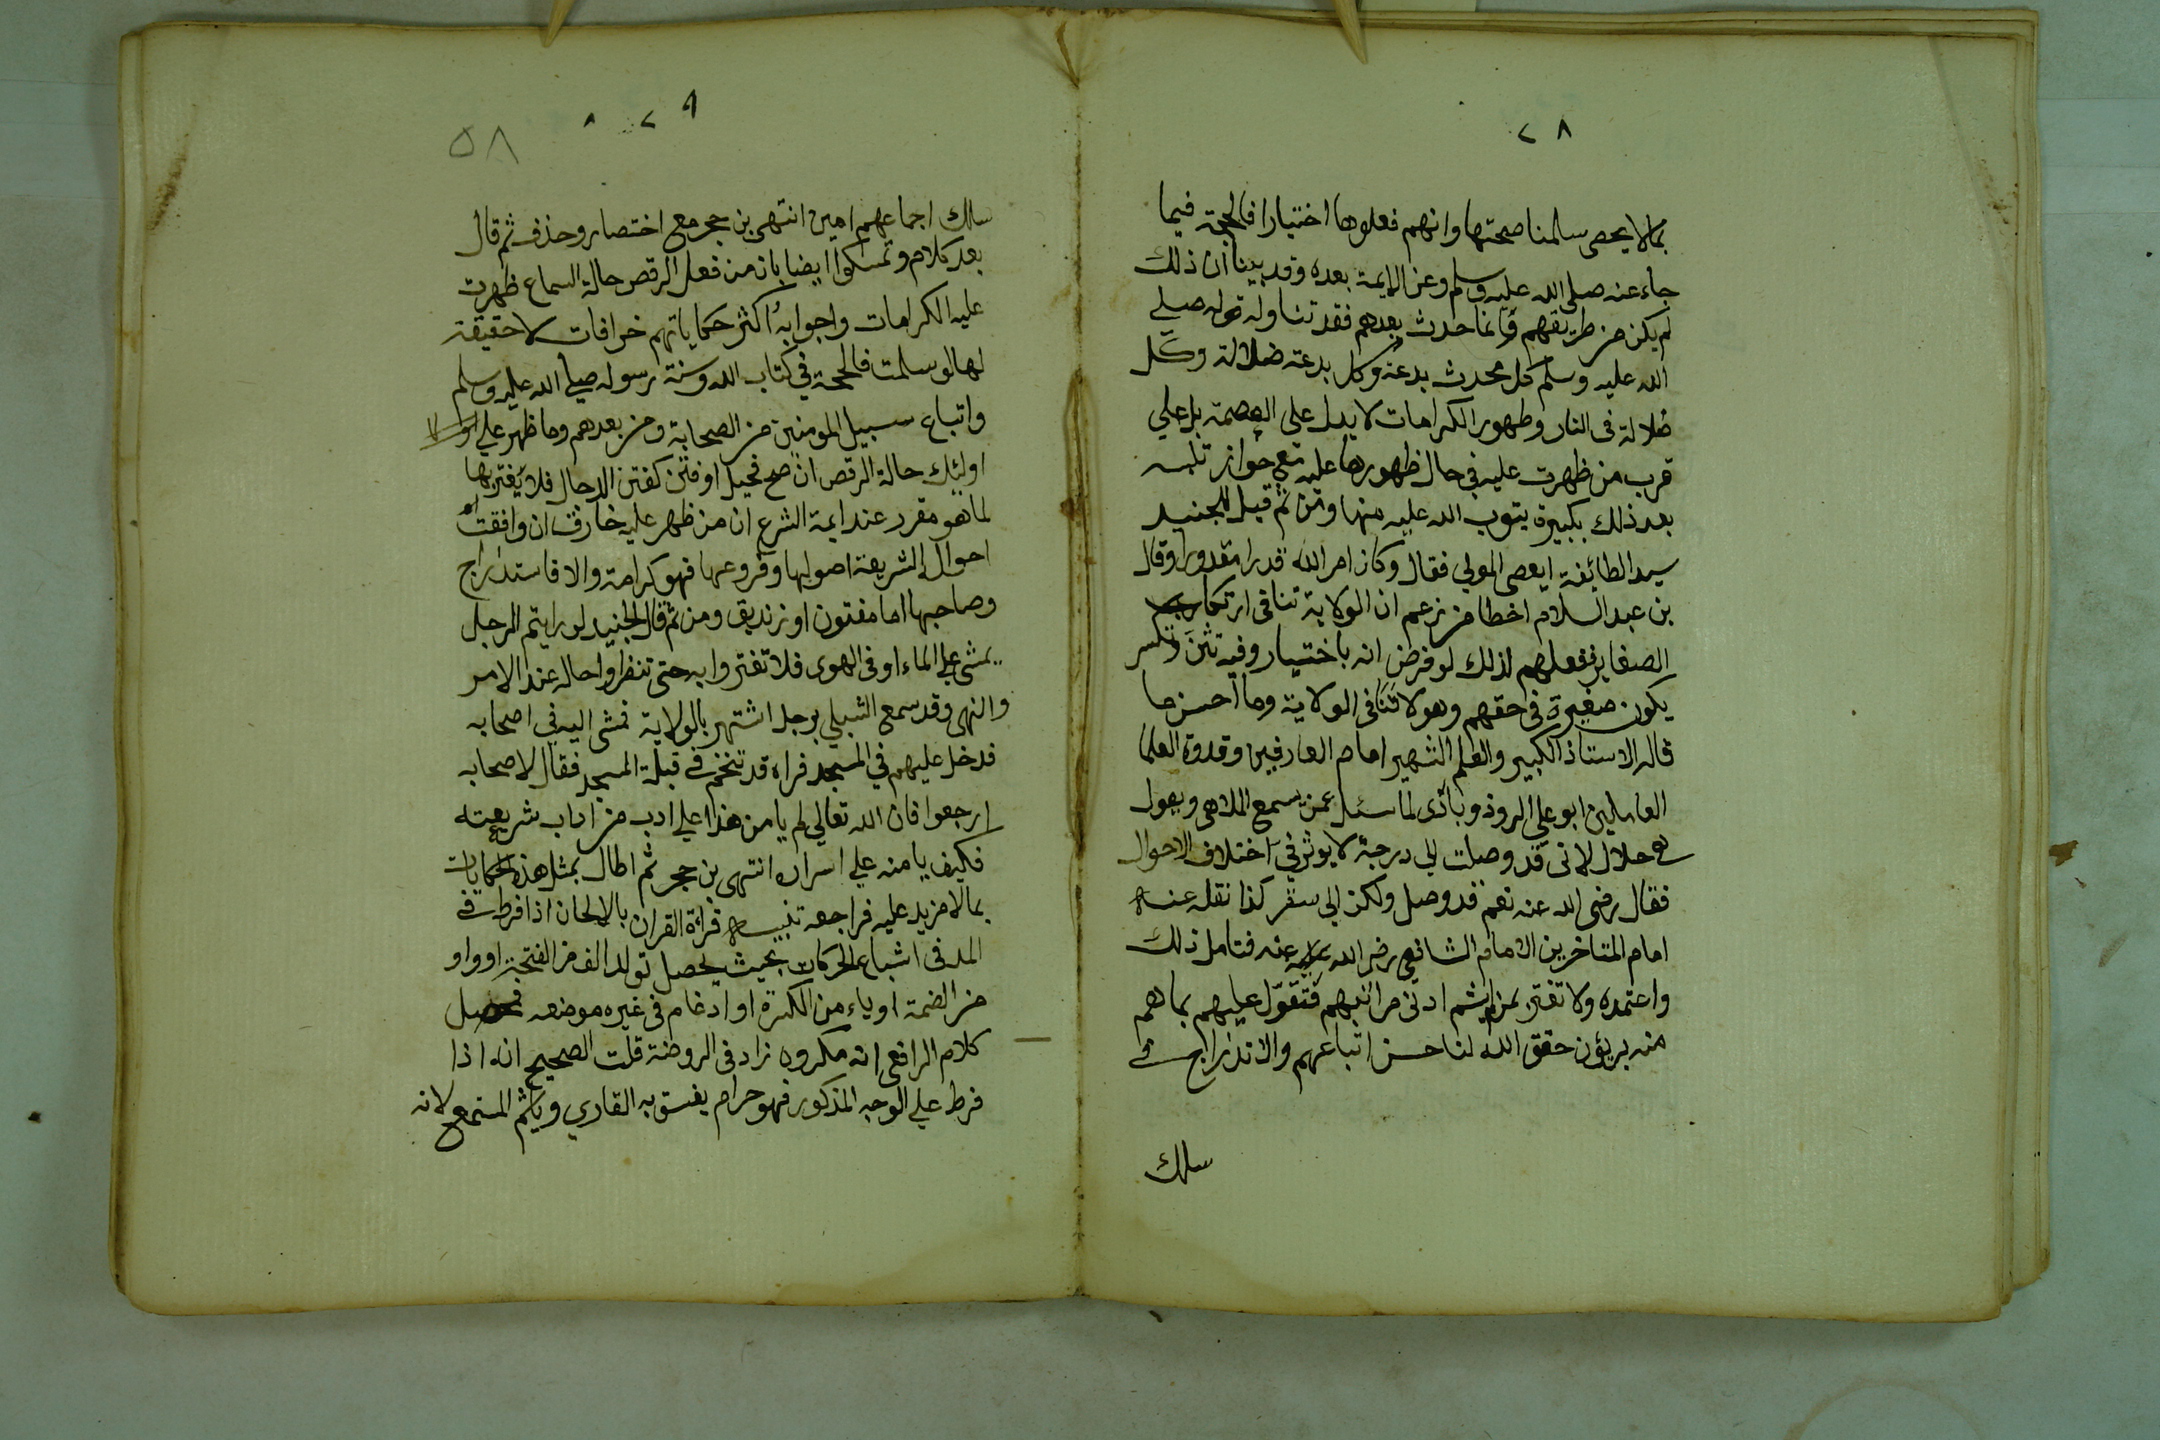 ٢٨
مما لا يحصى سلمنا صحتها وانهم فعلوها اختيارا فالحجة فيما
جاء عنه صلى الله عليه وسلم وعن الايمة بعده وقد بينا ان ذلك
لم يكن من طريقهم وانما حدث بعدهم فقد تناوله قوله صلي
الله عليه وسلم كل محدث بدعة وكل بدعة ضلالة وكل
ضلالة فى النار وظهور الكرامات لا يدل على العصمة بل علي
قرب من ظهرت عليه في حال ظهورها عليه مع جواز تلبسه
بعد ذلك بكبيرة يتوب الله عليه منها ومن ثم قيل للجنيد
سيد الطائفة ايعصى المولي فقال وكان امر الله قدرا مقدورا وقال
بن عبد السلام اخطا من زعم ان الولاية تنافى ارتكابهم
الصغاير ففعلهم لذلك لو فرض انه باختيار وفيه تثن وتكسر
يكون صغيرة فى حقهم وهو لا تنافى الولاية وما احسن ما
قاله الاستاذ الكبير والعلم الشهير امام العارفين وقدوة العلما
العاملين ابو علي الروذوبادى لما سئل عمن يسمع الملاهى ويقول
هى حلال لانى قد وصلت الي درجة لا يوثر في اختلاف الاحوال
فقال رضى الله عنه نعم قد وصل ولكن الي سقر كذا نقله عنه
امام المتاخرين الامام الشافعي رضي الله عنه فتامل ذلك
واعتمده ولا تغتر بمن لم يشم ادنى مراتبهم فتقول عليهم بما هم
منه بريؤن حقق الله لنا حسن اتباعهم والاندراج في
سلك
٢٩
٥٨
سلك اجماعهم امين انتهى بن حجر مع اختصار وحذف ثم قال
بعد كلام وتمسكوا ايضا بان من فعل الرقص حالة السماع ظهرت
عليه الكرامات وجوابه اكثر حكاياتهم خرافات لا حقيقة
لها لو سلمت فالحجة في كتاب الله وسنة رسوله صلي الله عليه وسلم
واتباع سبيل المومنين من الصحابة ومن بعدهم وما ظهر علي
اولئك حالة الرقص ان صح فحيل او فتن كفتن الدجال فلا يغتر بها
لما هو مقرر عند ايمة الشرع ان من ظهر عليه خارق ان وافقت
احواله الشريعة اصولها وفروعها فهو كرامة والا فاستدراج
وصاحبها اما مفتون او زنديق ومن ثم قال الجنيد لو رايتم الرجل
يمشى علي الماء او فى الهوى فلا تغتروا به حتى تنظروا حاله عند الامر
والنهى وقد سمع الشبلي برجل اشتهر بالولاية فمشى اليه في اصحابه
فدخل عليهم في المسجد فراه قد تنخم في قبلة المسجد فقال لاصحابه
ارجعوا فان الله تعالي لم يامن هذا علي ادب من اداب شريعته
فكيف يامنه علي اسراره انتهى بن حجر ثم اطال بمثل هذه الحكايات
بما لا مزيد عليه فراجعه تنبيه قراءة القران بالالحان اذا فرط في
المد فى اشباع الحركات بحيث يحصل تولد الف من الفتحة او واو
من الضمة او ياء من الكسرة او ادغام فى غيره موضعه فحصل
كلام الرافعي انه مكروه زاد فى الروضة قلت الصحيح انه اذا
فرط علي الوجه المذكور فهو حرام يفسق به القاري وياثم المستمع لانه